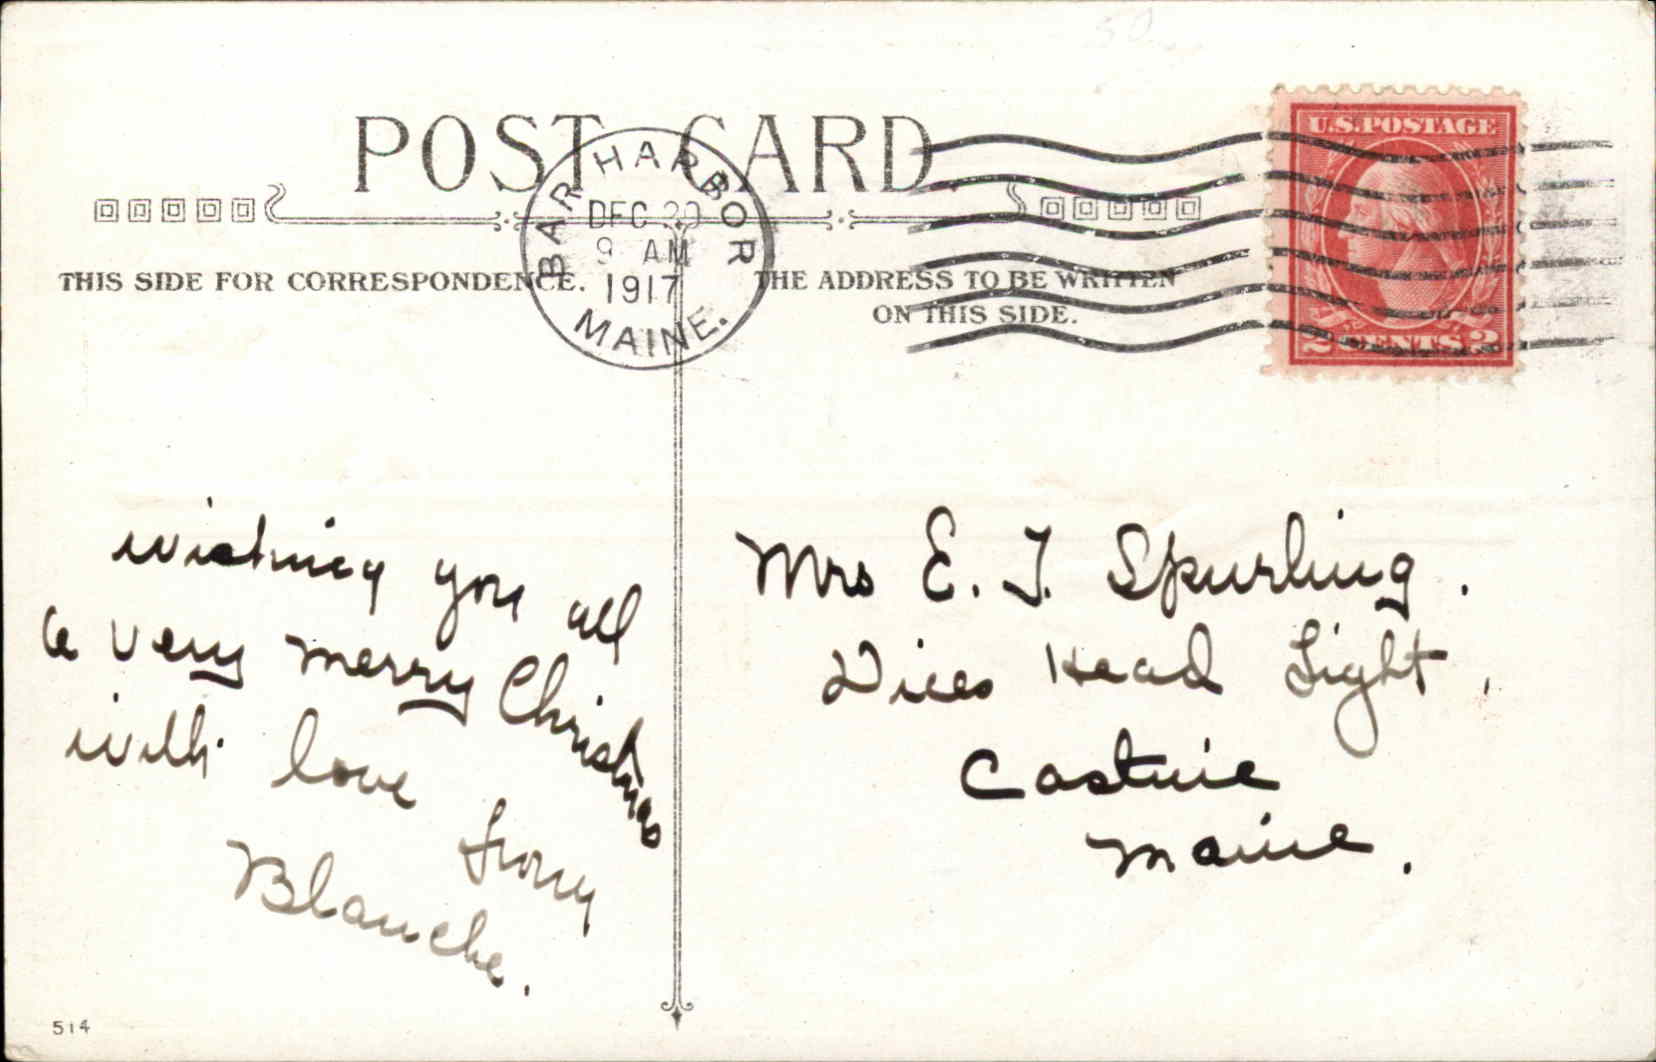 POST CARD
BAR HARBOR
DEC 20
9 AM
1917
MAINE.
U.S.POSTAGE
2 CENTS 2
THIS SIDE FOR CORRESPONDENCE.
THE ADDRESS TO BE WRITTEN
ON THIS SIDE.
wishing you all
a very merry Christmas
with love from
Blanche.
Mrs E. T. Spurling.
Dices Head Light,
Castine
Maine.
514